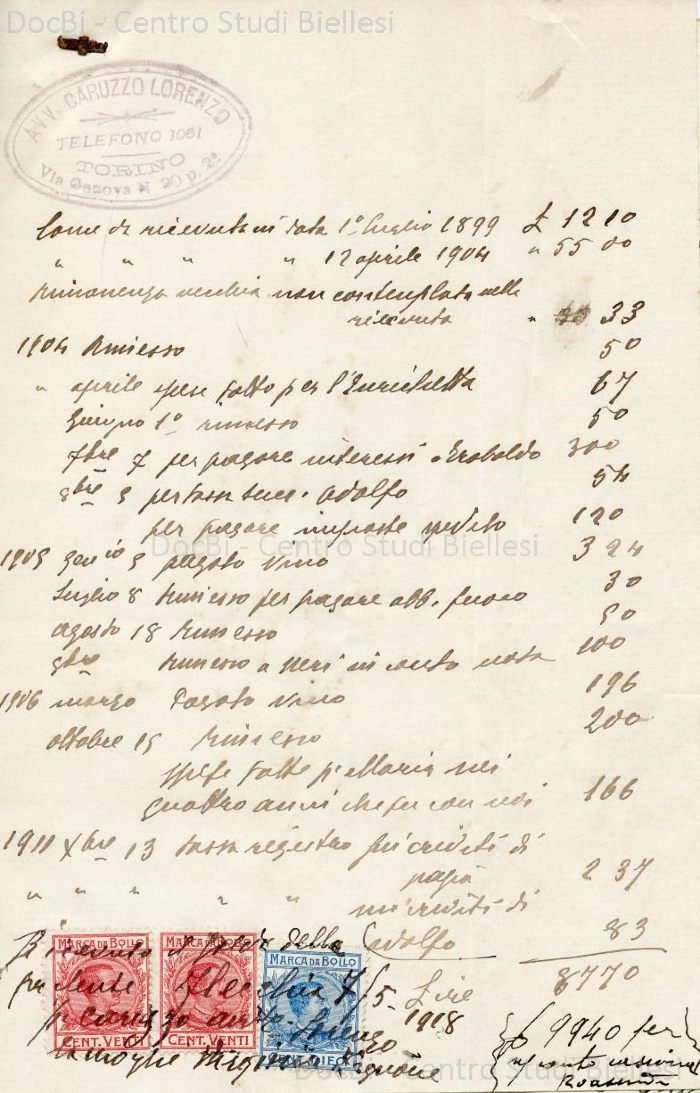 DocBi - Centro Studi Biellesi
AVV. CARUZZO LORENZO
TELEFONO 1061
TORINO
Via Genova N. 20 p. 2º
Come da ricevuta in data 1º Luglio 1899 £ 1210
" " " " 12 aprile 1904 " 5500
rimanenza vecchia non contemplata nelle
ricevuta " 33
1904 Rimesso 50
" aprile spese fatte per l'Enrichetta 67
Giugno 1º rimesso 50
7bre 7 per pagare interessi 300
8bre 5 per tassa succ. Adolfo 54
per pagare imposte 120
DocBi - Centro Studi Biellesi
1905 gen io 5 pagato vino 324
Luglio 8 rimesso per pagare abb. fuoco 30
agosto 18 rimesso 50
9bre rimesso a Neri in conto nota 100
1906 marzo Pagato vino 196
ottobre 15 Rimesso 200
spese fatte p Maria nei
quattro anni che fu con noi 166
1911 Xbre 13 tassa registro sui crediti di
papà 237
" " " " " sui crediti di
Adolfo 83
8770
Ricevuto il saldo della
presente 7/5- Lire
1918
p Caruzzo avv. Lorenzo
la moglie
£ 9940 per
MARCA DA BOLLO
CENT. VENTI
MARCA DA BOLLO
CENT. VENTI
MARCA DA BOLLO
DocBi - Centro Studi Biellesi